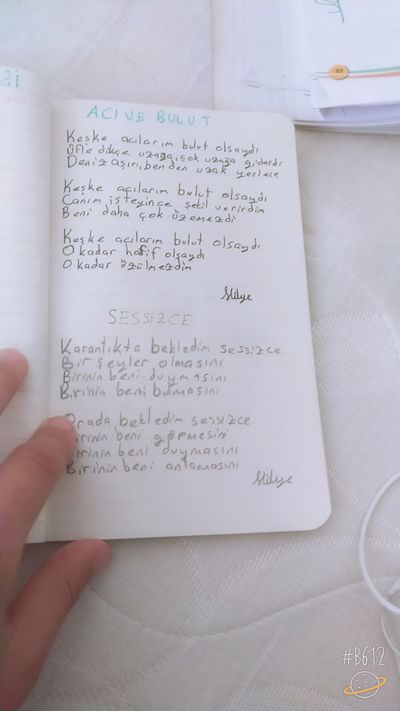 Bİ
ACI VE BULUT
Keşke acılarım bulut olsaydı
Üfledikçe uzağa, çok uzağa giderdi
Deniz aşırı, benden uzak yerlere
Keşke acılarım bulut olsaydı
Canım isteyince şekil verirdim
Beni daha çok üzemezdi
Keşke acılarım bulut olsaydı
O kadar hafif olsaydı
O kadar üzülmezdim
SESSİZCE
Karanlıkta bekledim sessizce
Bir şeyler olmasını
Birinin beni duymasını
Birinin beni bulmasını
Orada bekledim sessizce
Birinin beni görmesini
Birinin beni duymasını
Birinin beni anlamasını
#B612